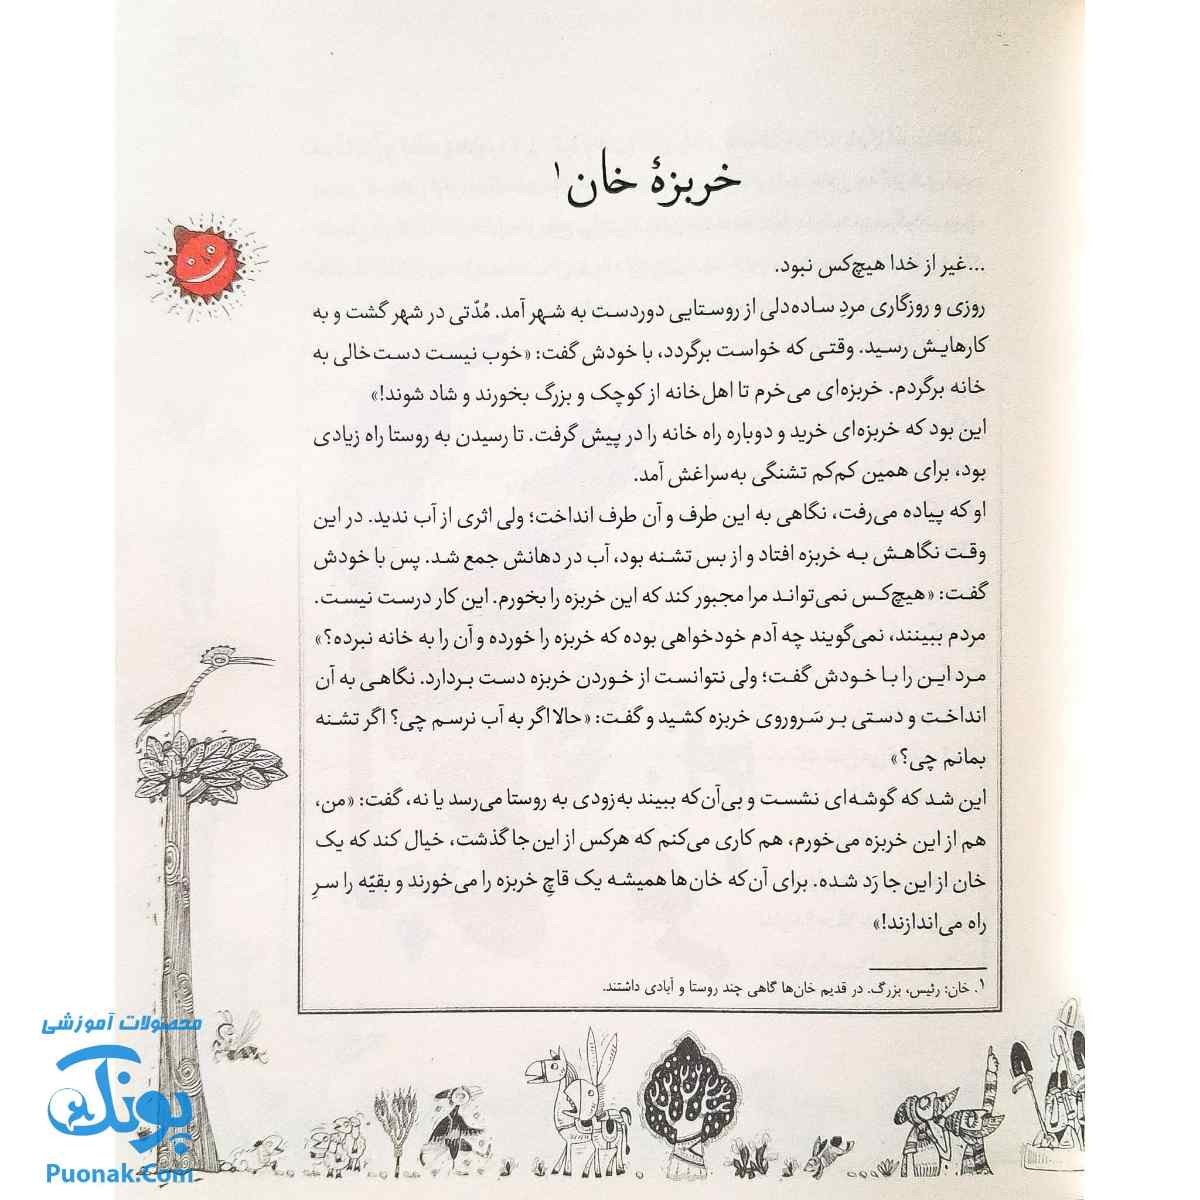 خربزهٔ خان۱
...غیر از خدا هیچ‌کس نبود.
روزی و روزگاری مردِ ساده‌دلی از روستایی دوردست به شهر آمد. مُدّتی در شهر گشت و به
کارهایش رسید. وقتی که خواست برگردد، با خودش گفت: «خوب نیست دست‌خالی به
خانه برگردم. خربزه‌ای می‌خرم تا اهل‌خانه از کوچک و بزرگ بخورند و شاد شوند!»
این بود که خربزه‌ای خرید و دوباره راه خانه را در پیش گرفت. تا رسیدن به روستا راه زیادی
بود، برای همین کم‌کم تشنگی به‌سراغش آمد.
او که پیاده می‌رفت، نگاهی به این طرف و آن طرف انداخت؛ ولی اثری از آب ندید. در این
وقت نگاهش به خربزه افتاد و از بس تشنه بود، آب در دهانش جمع شد. پس با خودش
گفت: «هیچ‌کس نمی‌تواند مرا مجبور کند که این خربزه را بخورم. این کار درست نیست.
مردم ببینند، نمی‌گویند چه آدم خودخواهی بوده که خربزه را خورده و آن را به خانه نبرده؟»
مرد این را با خودش گفت؛ ولی نتوانست از خوردن خربزه دست بردارد. نگاهی به آن
انداخت و دستی بر سَر‌وروی خربزه کشید و گفت: «حالا اگر به آب نرسم چی؟ اگر تشنه
بمانم چی؟»
این شد که گوشه‌ای نشست و بی‌آن‌که ببیند به‌زودی به روستا می‌رسد یا نه، گفت: «من،
هم از این خربزه می‌خورم، هم کاری می‌کنم که هرکس از این‌جا گذشت، خیال کند که یک
خان از این‌جا رَد شده. برای آن‌که خان‌ها همیشه یک قاچ خربزه را می‌خورند و بقیّه را سرِ
راه می‌اندازند!»
۱. خان: رئیس، بزرگ. در قدیم خان‌ها گاهی چند روستا و آبادی داشتند.
محصولات آموزشی
پونک
Puonak.Com